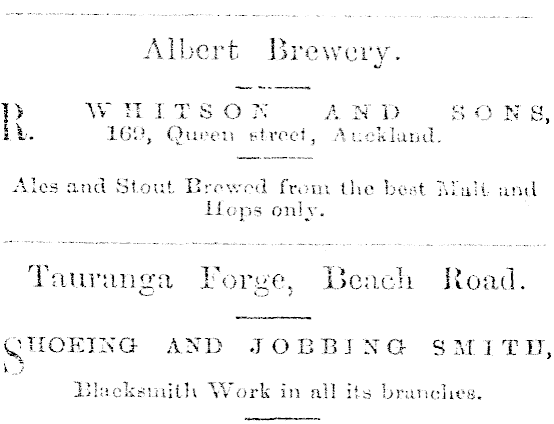 Albert Brewery.
R. WHITSON AND SONS,
169, Queen street, Auckland.
Ales and Stout Brewed from the best Malt and
Hops only.
Tauranga Forge, Beach Road.
SHOEING AND JOBBING SMITH,
Blacksmith Work in all its branches.